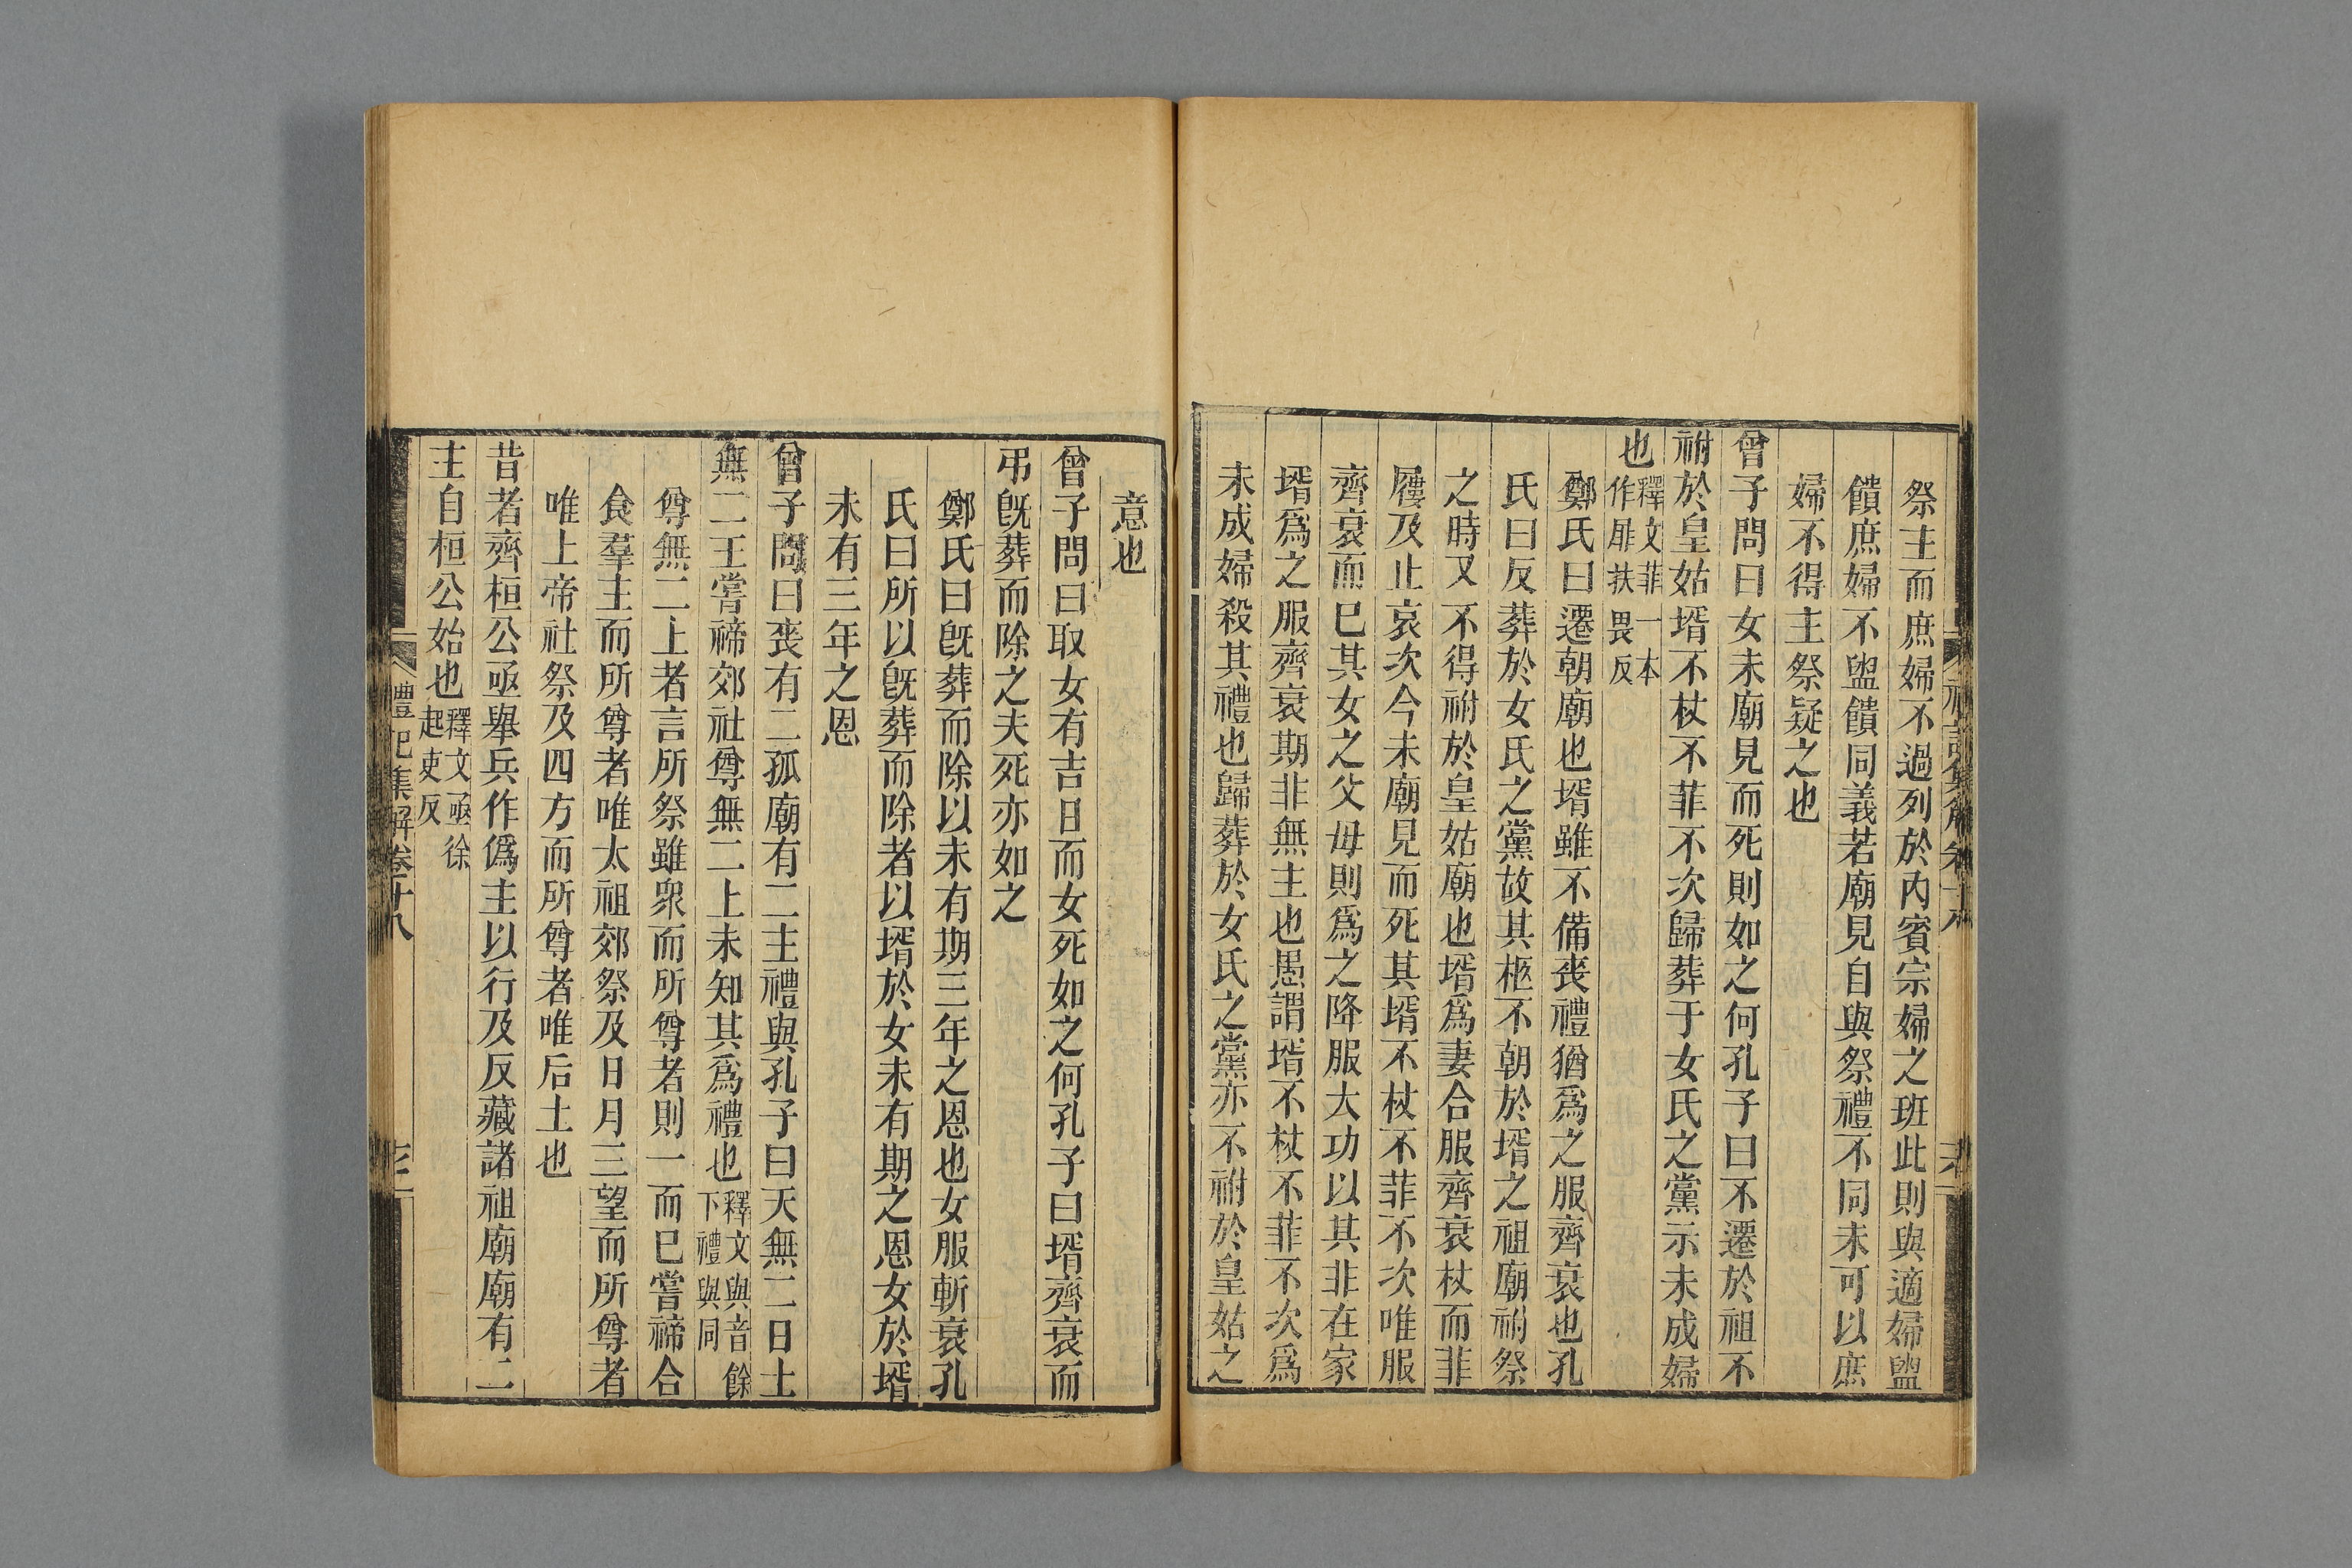 祭主而庶婦不過列於內賓宗婦之班此則與適婦盥
饋庶婦不盥饋同義若廟見自與祭禮不同未可以庶
婦不得主祭疑之也
曾子問曰女未廟見而死則如之何孔子曰不遷於祖不
祔於皇姑壻不杖不菲不次歸葬于女氏之黨示未成婦
也釋文菲一本
作屝扶畏反
鄭氏曰遷朝廟也壻雖不備喪禮猶爲之服齊衰也孔
氏曰反葬於女氏之黨故其柩不朝於壻之祖廟祔祭
之時又不得祔於皇姑廟也壻爲妻合服齊衰杖而菲
屨及止哀次今未廟見而死其壻不杖不菲不次唯服
齊衰而已其女之父母則爲之降服大功以其非在家
壻爲之服齊衰期非無主也愚謂壻不杖不菲不次爲
未成婦殺其禮也歸葬於女氏之黨亦不祔於皇姑之
意也
曾子問曰取女有吉日而女死如之何孔子曰壻齊衰而
弔旣葬而除之夫死亦如之
鄭氏曰旣葬而除以未有期三年之恩也女服斬衰孔
氏曰所以旣葬而除者以壻於女未有期之恩女於壻
未有三年之恩
曾子問曰喪有二孤廟有二主禮與孔子曰天無二日土
無二王嘗禘郊社尊無二上未知其爲禮也釋文與音餘
下禮與同
尊無二上者言所祭雖衆而所尊者則一而已嘗禘合
食羣主而所尊者唯太祖郊祭及日月三望而所尊者
唯上帝社祭及四方而所尊者唯后土也
昔者齊桓公亟舉兵作僞主以行及反藏諸祖廟廟有二
主自桓公始也釋文亟徐
起吏反
禮記集解卷十八